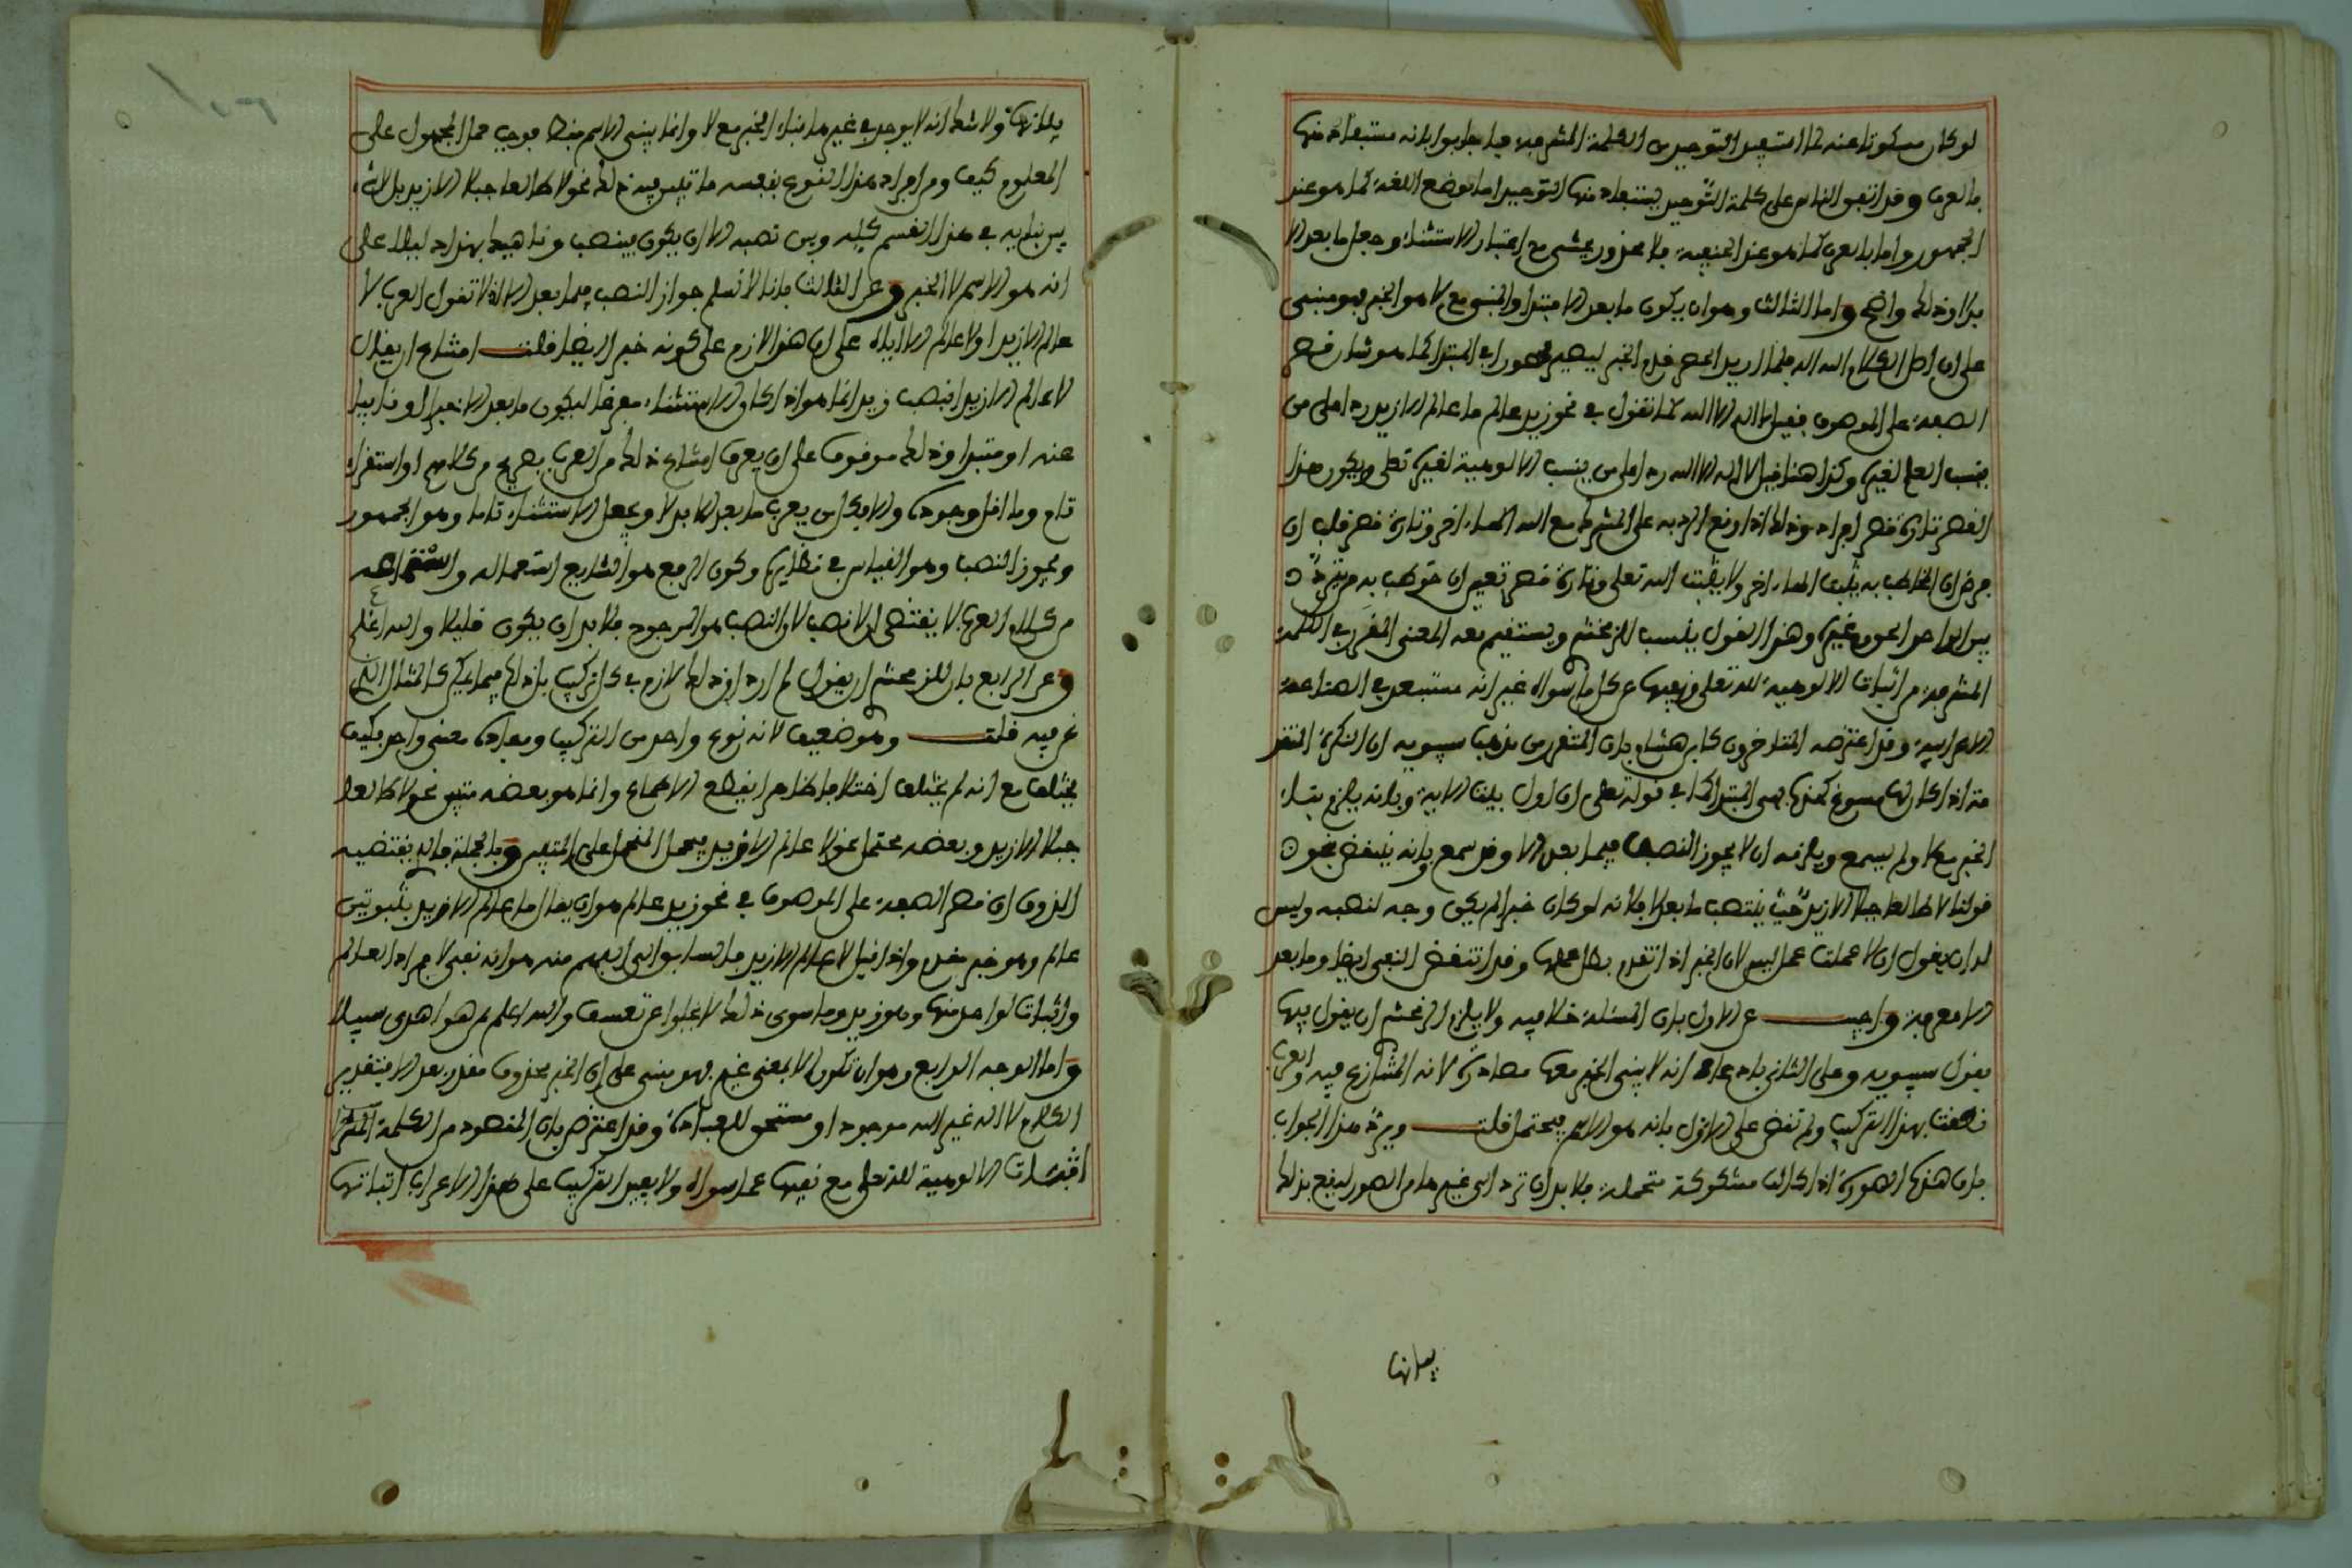 لو كان مسكوتا عنه لما استفيد التوحيد من الكلمة المشرفة فاجابوا بانه مستفاد منها
بالعرف وقد اتفق الناس على كلمة التوحيد يستفاد منها التوحيد اما بوضع اللغة كما هو عند
الجمهور واما بالعرف كما هو عند الحنفية فلا محذور يمشي مع اعتبار الاستثناء وجعل ما بعد الا
بدلا وذلك واضح واما الثالث وهو ان يكون ما بعد الا مبتدا والمنفي مع لا هو الخبر فهو مبني
على ان اصل الكلام الله اله فلما اريد الحصر قدم الخبر ليصير محصورا في المبتدا كما هو شان قصر
الصفة على الموصوف فقيل لا اله الا الله كما تقول في نحو زيد عالم ما عالم الا زيد ردا على من
ينسب العلم لغيره وكذا هنا قيل لا اله الا الله ردا على من ينسب الالوهية لغيره تعلى ويكون هذا
القصر تارة قصر افراد وذلك اذا وقع الرد به على المشرك مع الله الها اخر وتارة قصر قلب ان
فرض ان المخاطب به يثبت الها اخر ولا يثبت الله تعلى وتارة قصر تعيين ان خوطب به من تردد
بين الواحد الحق وغيره وهذا القول ينسب للزمخشري ويستقيم معه المعنى المقرر في الكلمة
المشرفة من اثبات الالوهية لله تعلى ونفيها عن كل ما سواه غير انه مستبعد في الصناعة
الاعرابية وقد اعترضه المتاخرون كابن هشام بان المتقرر من مذهب سيبويه ان النكرة المتقد
مة اذا كان لها مسوغ كهذه فهي المبتدا كما في قوله تعلى ان اول بيت الاية وبانه يلزم بناء
الخبر مع لا ولم يسمع ويلزمه ان لا يجوز النصب فيما بعد الا وقد سمع وبانه ينتقض بنحو
قولنا لا طالعا جبلا الا زيد حيث ينتصب ما بعد لا فلانه لو كان خبرا لم يكن وجه لنصبه وليس
له ان يقول ان لا عملت عمل ليس لان الخبر اذا تقدم بطل عملها وقد انتقض النفي ايضا وما بعد
الا معرفة واجيب عن الاول بان المسئلة خلافية ولا يلزم الزمخشري ان يقول فيها
بقول سيبويه وعلى الثاني بادعاء انه لا يبنى الخبر معها مصادرة لانه المتنازع فيه والعرب
نطقت بهذا التركيب ولم تنص على الاول بانه هو الاسم فيحتمل قلت ويرد هذا الجواب
بان هذه الصورة اذا كانت مشكوكة محتملة فلا بد ان ترد الى غيرها من الصور ليقع بذلك
بيانها
بيانها ولا شك انه لا يوجد في غيرها بناء الخبر مع لا وانما يبنى الاسم فقط فوجب حمل المجهول على
المعلوم كيف ومن افراد هذا النوع بنفسه ما تبين فيه ذلك نحو لا طالعا جبلا الا زيد بل لا
بين بنايه في هذا القسم كله وبين نصبه الا ان يكون ينصب وناهيك بهذا دليلا على
انه هو الاسم لا الخبر وعن الثالث بانا لا نسلم جواز النصب فيما بعد الا اذ لا تقول العرب لا
عالم الا زيدا ولا عالم الا اياه على ان هذا لازم على كونه خبرا ايضا قلت امتناع ان يقال
لا عالم الا زيدا بنصب زيد انما هو اذا كان الاستثناء مفرغا ليكون ما بعد الا خبرا او نايبا
عنه او مبتدا وذلك موقوف على ان يعرف امتناع ذلك من العرب بصريح من كلامهم او استقراء
تام وما اقل وجوده والا فكل من يعرب ما بعد الا بدلا ويجعل الاستثناء تاما وهو الجمهور
ويجوز النصب وهو القياس في نظايره وكون الرفع هو الشايع استعماله
من كلام العرب لا يقتضي ان لا نصب لا والنصب هو المرجوح فلا بد ان يكون قليلا والله اعلم
وعن الرابع بان للزمخشري ان يقول لم ارد ان ذلك لازم في كل تركيب بل ذلك فيما كالمثال الذي
نحن فيه قلت وهو ضعيف لانه نوع واحد من التركيب ومفاده معنى واحد فكيف
يختلف مع انه لم يختلف اختلافا ظاهرا يقطع الاطماع وانما هو بعضه متيقن نحو لا طالعا
جبلا الا زيد وبعضه محتمل نحو لا عالم الا زيد فيحمل المحتمل على المتيقن وبالجملة فالذي يقتضيه
الذوق ان قصر الصفة على الموصوف في نحو زيد عالم هو ان يقال ما عالم الا زيد بثبوت
عالم وهو خبر مقدم واذا قيل لا عالم الا زيد فالسابق الى الفهم منه هو انه نفى لافراد العالم
واثبات لواحد منها وهو زيد وما سوى ذلك لا يخلوا عن تعسف والله اعلم بمن هو اهدى سبيلا
واما الوجه الرابع وهو ان تكون الا بمعنى غير فهو مبني على ان الخبر محذوف مقدر بعد الا بتقدير
الكلام لا اله غير الله موجود او مستحق للعبادة وقد اعترض بان المقصود من الكلمة المشرفة
اثبات الالوهية لله تعلى مع نفيها عما سواه ولا يفيد التركيب على هذا الاعراب اثباتها